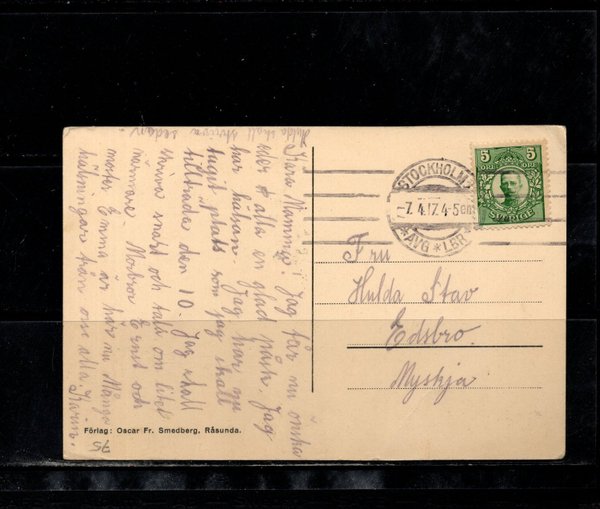 Hulda skall skriva sedan.
Kära Mamma! Jag får nu önska
eder alla en glad påsk. Jag
har hälsan. Jag har nu
tagit plats som jag skall
tillträda den 10. Jag skall
skriva snart och tala om litet
närmare. Morbror Ernst och
moster Emma är här nu. Många
hälsningar från oss alla. Karin.
Förlag: Oscar Fr. Smedberg, Råsunda.
75
STOCKHOLM
-7.4.17.4-5
*AVG*LBR*
5 5
ÖRE ÖRE
SVERIGE
Fru
Hulda Stav
Edsbro.
Myskja